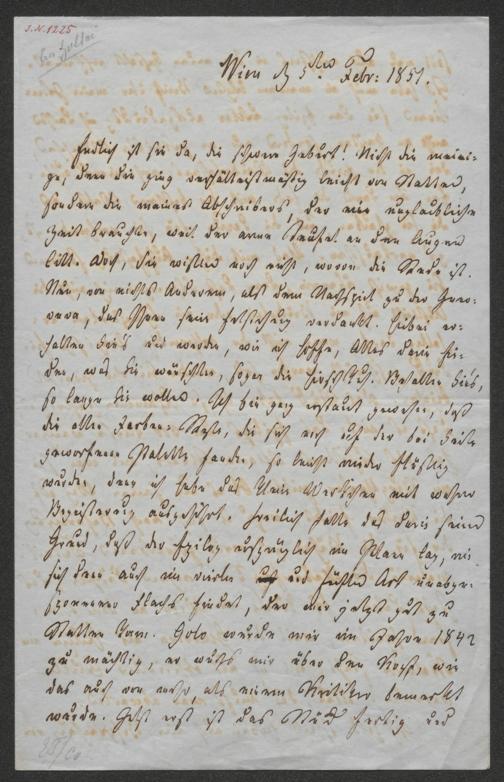 I.N. 1225
Wien d 5ten Febr: 1851.
Endlich ist sie da, die schwere Geburt! Nicht die meini-
ge, denn die ging verhältnißmäßig leicht von Statten,
sondern die meines Abschreibers, der eine unglaubliche
Zeit brauchte, weil der arme Teufel an den Augen
litt. Doch, Sie wissen noch nicht, wovon die Rede ist.
Nun, von nichts Anderem, als dem Nachspiel zu der Geno-
veva, das Ihnen seine Entstehung verdankt. Hiebei er-
halten Sie's und werden, wie ich hoffe, Alles darin fin-
den, was Sie wünschten, sogar die Behalten Sie's,
so lange Sie wollen. Ich bin ganz erstaunt gewesen, daß
die alten Farben-Reste, die sich noch auf der bei Seite
geworfenen Palette fanden, so leicht wieder flüssig
wurden, denn ich habe das kleine Werkchen mit wahrer
Begeisterung ausgeführt. Freilich hatte das darin seinen
Grund, daß der Epilog ursprünglich im Plan lag, wie
sich denn auch im vierten und fünften Act unabge-
sponnener Flachs findet, der mir jetzt gut zu
Statten kam. Golo wurde mir im Jahre 1842
zu mächtig, er wuchs mir über den Kopf, wie
das auch von mehr, als einem Kritiker bemerkt
wurde. Jetzt erst ist das Stück fertig und